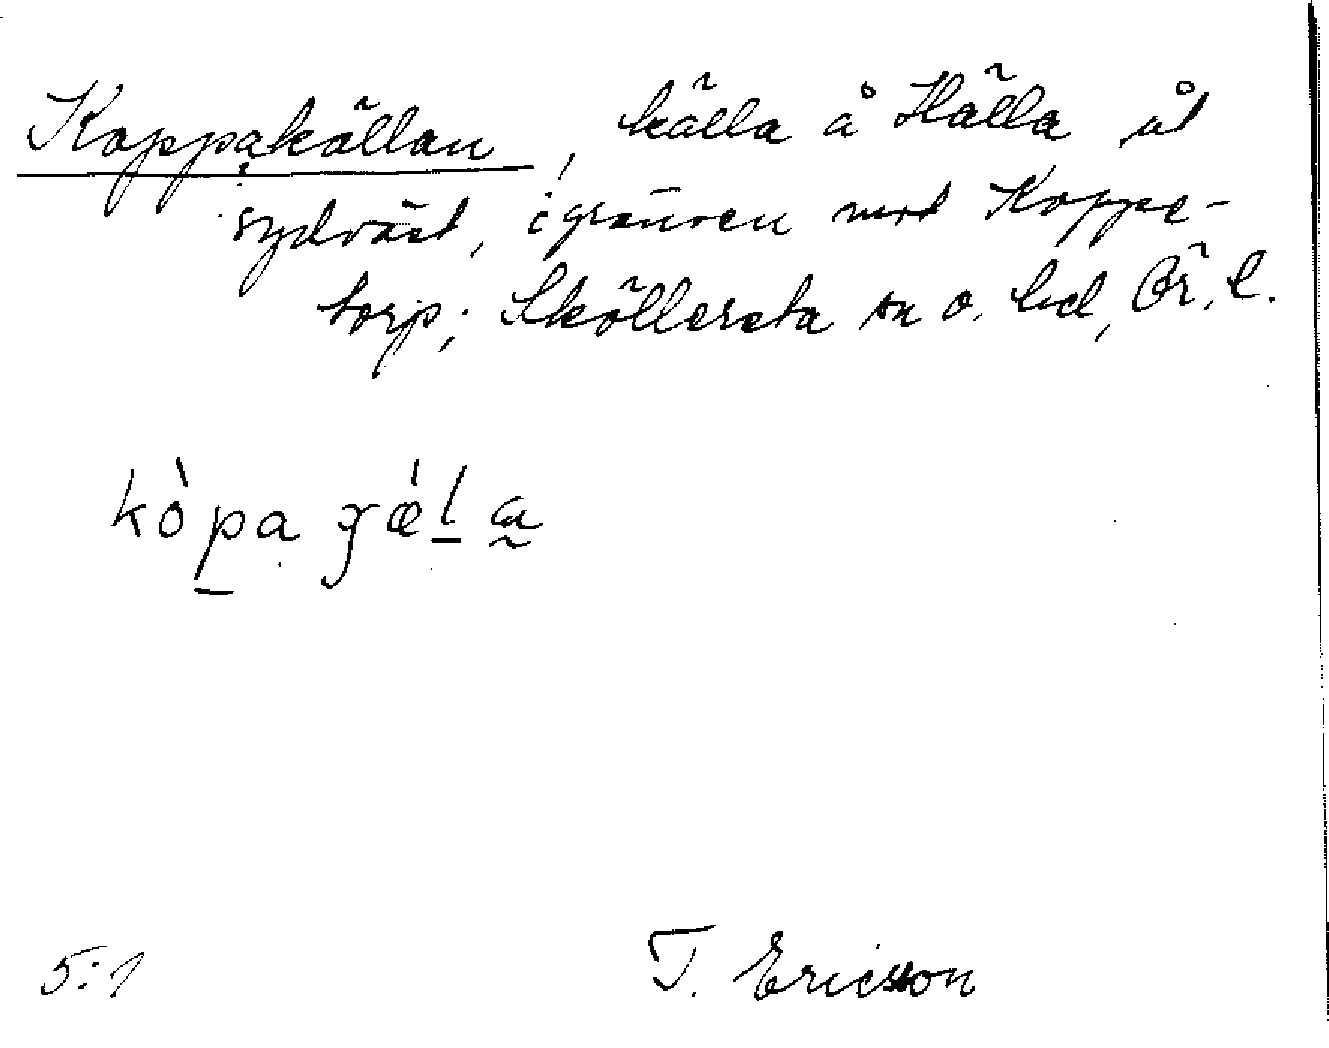 Koppakällan, källa å Hälla åt
sydväst, i gränsen mot Koppe-
torp; Sköllersta sn o. hd, Ör. l.
kòpa gǽl a
5:1
T. Ericsson